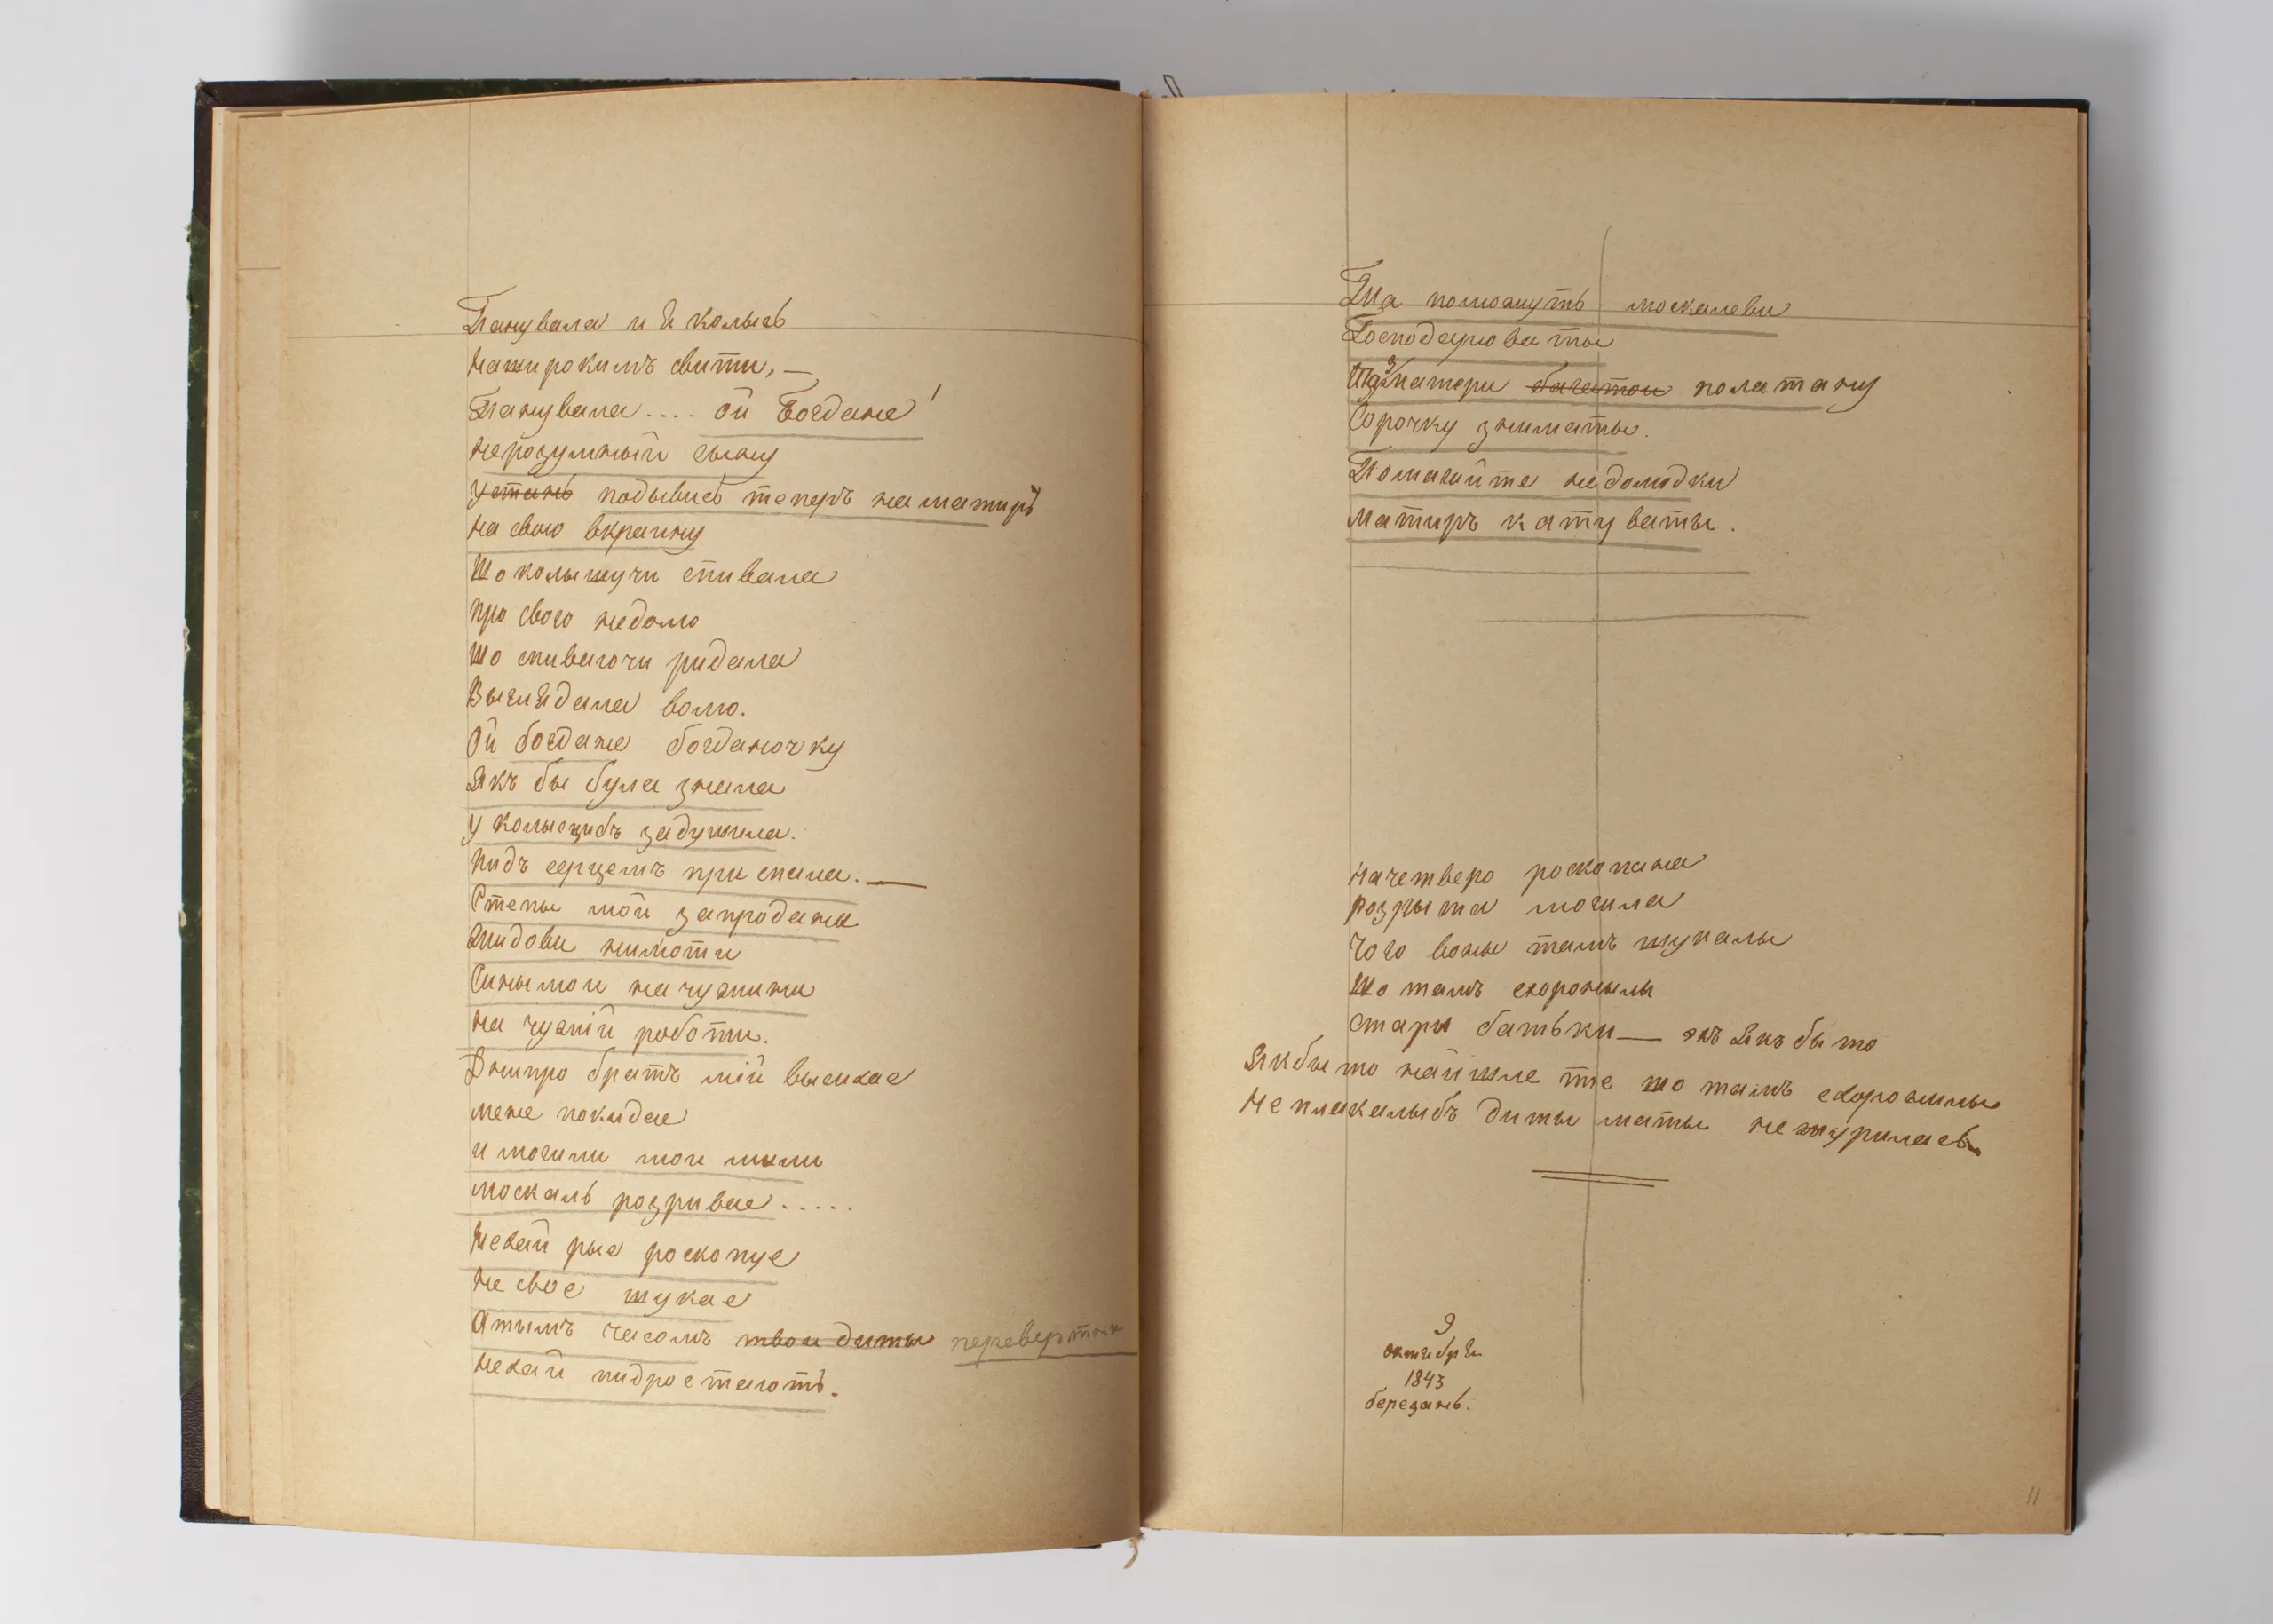 Панувала и я колысь
Наширокимъ свити, —
Панувала.... Ой Богдане!
Нерозумный сыну
Устань подывись теперъ на матирь
На свою вкраину
Шо колышучи спивала
Про свого недолю
Шо спиваючи ридала
Выглядала волю.
Ой богдане богданочку
Якъ бы була знала
У колысцибъ задушила.
Пидъ серцемъ приспала. —
Степы мои запроданы
Жидови нимоти
Сины мои на чужини
На чужій роботи.
Днипро братъ мій высихае
Мене покидае
И могили мои мили
Москаль розривае.....
Нехай рые роскопуе
Не свое шукае
Атымъ часомъ твои диты перевертни
Нехай пидростають.
Та поможуть москалеви
Господарюваты
Таз матери багатои полатану
Сорочку зниматы.
Помагайте недолюдки
Матиръ катуваты.
Начетверо роскопана
Розрыта могила
Чого воны тамъ шукалы
Шо тамъ схоронылы
Стари батьки — эхъ Якъ бы то
Якбы то найшле те шо тамъ схоронилы
Не плакалыбъ диты маты не журилась
9
октября
1843
березань.
11